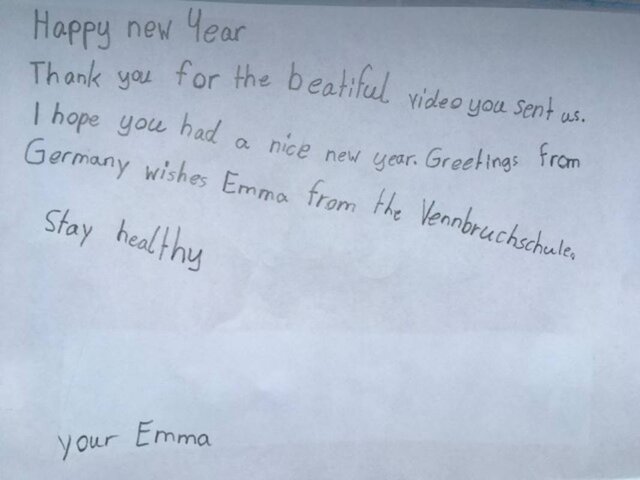 Happy new Year
Thank you for the beatiful video you sent us.
I hope you had a nice new year. Greetings from
Germany wishes Emma from the Vennbruchschule.
Stay healthy
your Emma